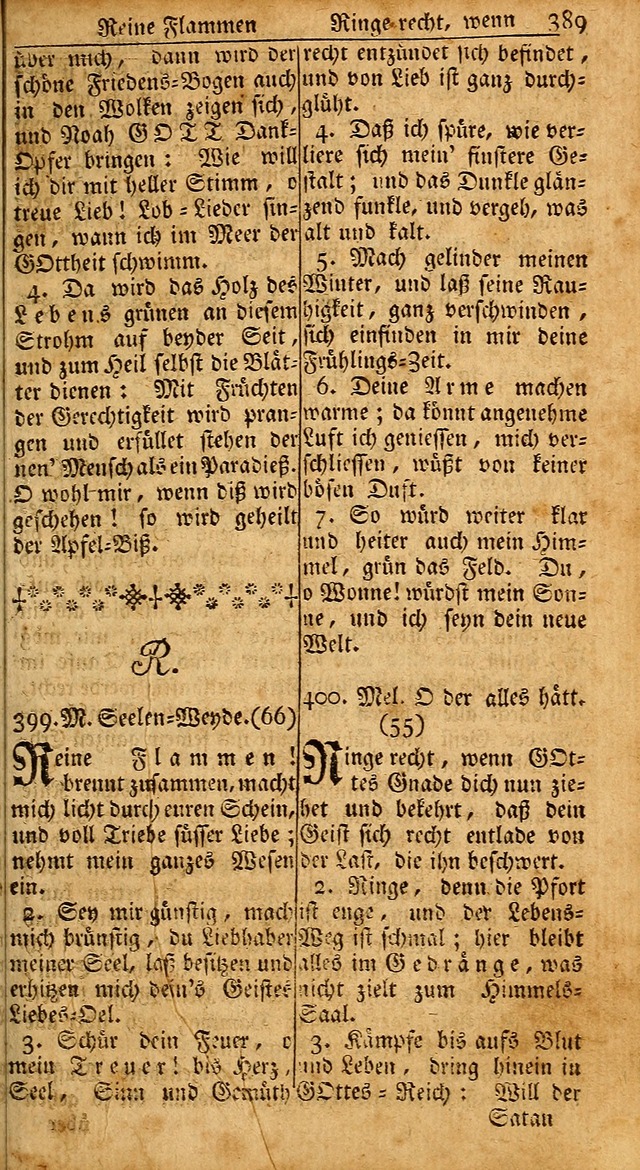 Reine Flammen Ringe recht, wenn 389
über mich, dann wird der
schöne Friedens-Bogen auch
in den Wolken zeigen sich,
und Noah GOTT Dank-
Opfer bringen: Wie will
ich dir mit heller Stimm, o
treue Lieb! Lob-Lieder sin-
gen, wann ich im Meer der
GOttheit schwimm.
4. Da wird das Holz des
Lebens grünen an diesem
Strohm auf beyder Seit,
und zum Heil selbst die Blät-
ter dienen: Mit Früchten
der Gerechtigkeit wird pran-
gen und erfüllet stehen der
neu' Mensch als ein Paradieß.
O wohl mir, wenn diß wird
geschehen! so wird geheilt
der Apfel-Biß.
R.
399. M. Seelen-Weyde. (66)
Reine Flammen!
brennt zusammen, macht
mich licht durch euren Schein,
und voll Triebe süsser Liebe;
nehmt mein ganzes Wesen
ein.
2. Sey mir günstig, mach
mich brünstig, du Liebhaber
meiner Seel, laß besitzen und
erhitzen mich dein's Geistes
Liebes-Oel.
3. Schür dein Feuer, o
mein Treuer! bis Herz,
Seel, Sinn und Gemüth
recht entzündet sich befindet,
und von Lieb ist ganz durch-
glüht.
4. Daß ich spüre, wie ver-
liere sich mein' finstere Ge-
stalt; und das Dunkle glän-
zend funkle, und vergeh, was
alt und kalt.
5. Mach gelinder meinen
Winter, und laß seine Rau-
higkeit, ganz verschwinden,
sich einfinden in mir deine
Frühlings-Zeit.
6. Deine Arme machen
warme; da könnt angenehme
Luft ich geniessen, mich ver-
schliessen, wüßt von keiner
bösen Duft.
7. So würd weiter klar
und heiter auch mein Him-
mel, grün das Feld. Du,
o Wonne! würdst mein Son-
ne, und ich seyn dein neue
Welt.
400. Mel. O der alles hätt.
(55)
Ringe recht, wenn GOt-
tes Gnade dich nun zie-
het und bekehrt, daß dein
Geist sich recht entlade von
der Last, die ihn beschwert.
2. Ringe, denn die Pfort
ist enge, und der Lebens-
Weg ist schmal; hier bleibt
alles im Gedränge, was
nicht zielt zum Himmels-
Saal.
3. Kämpfe bis aufs Blut
und Leben, dring hinein in
GOttes-Reich: Will der
Satan